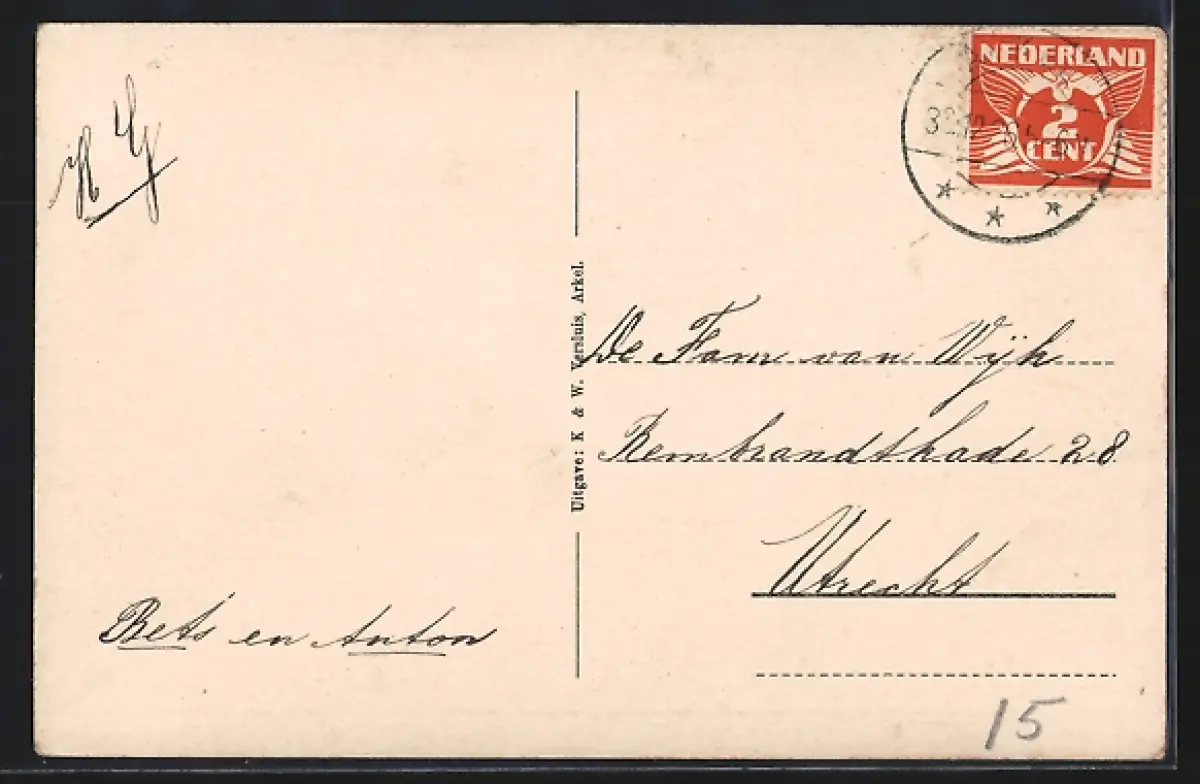 NEDERLAND
2
CENT
H G
De Fam van Wijk
Rembrandtkade 28
Utrecht
Bets en Anton
Uitgave: K & W. Versluis, Arkel.
15